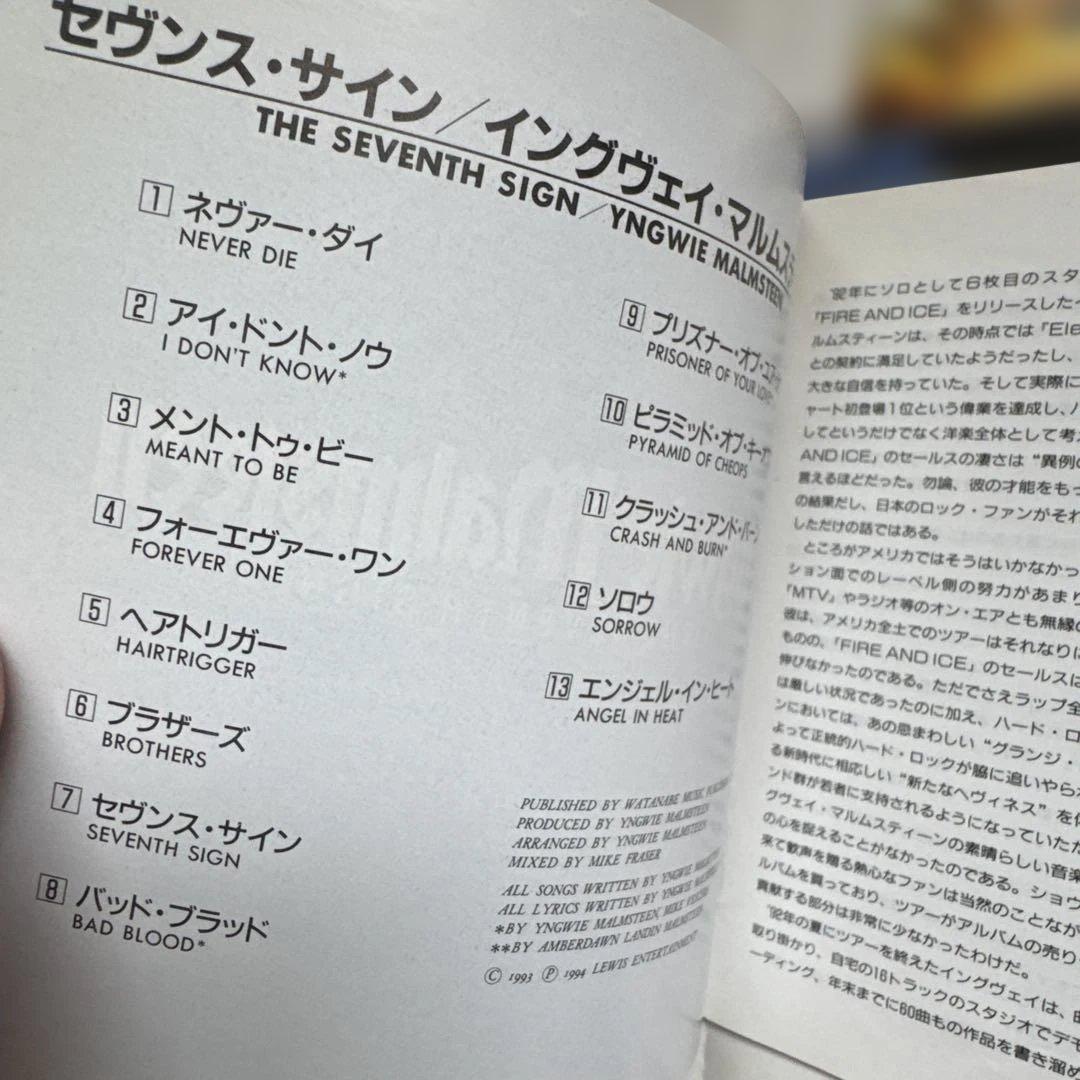 セヴンス・サイン／イングヴェイ・マルムステ
THE SEVENTH SIGN／YNGWIE MALMSTEEN
1 ネヴァー・ダイ
NEVER DIE
2 アイ・ドント・ノウ
I DON'T KNOW*
3 メント・トゥ・ビー
MEANT TO BE
4 フォーエヴァー・ワン
FOREVER ONE
5 ヘアトリガー
HAIRTRIGGER
6 ブラザーズ
BROTHERS
7 セヴンス・サイン
SEVENTH SIGN
8 バッド・ブラッド
BAD BLOOD*
9 プリズナー・オブ・ユア
PRISONER OF YOUR LOVE
10 ピラミッド・オブ・キーオ
PYRAMID OF CHEOPS
11 クラッシュ・アンド・バーン
CRASH AND BURN*
12 ソロウ
SORROW
13 エンジェル・イン・ヒート
ANGEL IN HEAT
PUBLISHED BY WATANABE MUSIC
PRODUCED BY YNGWIE MALMSTEEN
ARRANGED BY YNGWIE MALMSTEEN
MIXED BY MIKE FRASER
ALL SONGS WRITTEN BY YNGWIE
ALL LYRICS WRITTEN BY YNGWIE
*BY YNGWIE MALMSTEEN, MIKE
**BY AMBERDAWN LANDIN MALMSTEEN
© 1993 ℗ 1994 LEWIS ENTERTAINMENT
'92年にソロとして6枚目のスタ
「FIRE AND ICE」をリリースした
ルムスティーンは、その時点では「Ele
との契約に満足していたようだったし、
大きな自信を持っていた。そして実際に
ャート初登場1位という偉業を達成し、
してというだけでなく洋楽全体として考
AND ICE」のセールスの凄さは“異例の
言えるほどだった。勿論、彼の才能をもっ
の結果だし、日本のロック・ファンがそれ
しただけの話ではある。
ところがアメリカではそうはいかなかっ
ション面でのレーベル側の努力があまり
「MTV」やラジオ等のオン・エアとも無縁の
彼は、アメリカ全土でのツアーはそれなりに
ものの、「FIRE AND ICE」のセールスは
伸びなかったのである。ただでさえラップ全
は厳しい状況であったのに加え、ハード・ロ
ンにおいては、あの忌まわしい“グランジ・
よって正統的ハード・ロックが脇に追いやられ
る新時代に相応しい“新たなヘヴィネス”を
ンド群が若者に支持されるようになっていたた
グヴェイ・マルムスティーンの素晴らしい音楽
の心を捉えることがなかったのである。ショウ
来て歓声を贈る熱心なファンは当然のことなが
ルバムを買っており、ツアーがアルバムの売り
貢献する部分は非常に少なかったわけだ。
'92年の夏にツアーを終えたイングヴェイは、
取り掛かり、自宅の16トラックのスタジオでデモ
ーディング、年末までに60曲もの作品を書き溜め